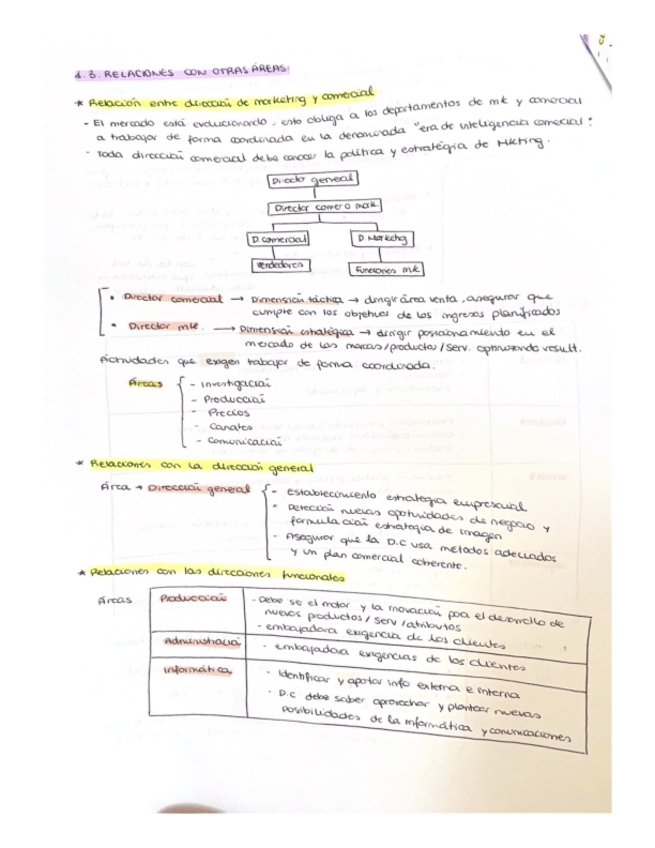 1.3. RELACIONES CON OTRAS ÁREAS:
* Relación entre dirección de marketing y comercial
- El mercado está evolucionando, esto obliga a los departamentos de mk y comercial
a trabajar de forma coordinada en la denominada "era de inteligencia comercial".
- Toda dirección comercial debe conocer la política y estrategia de Mkting.
Director general
Director comer o mark
D. comercial D. Marketing
Vendedores Funciones mk
• Director comercial → Dimensión táctica → dirigir área venta, asegurar que
cumple con los objetivos de los ingresos planificados
• Director mk. → Dimensión estratégica → dirigir posicionamiento en el
mercado de las marcas/productos/serv. optimizando result.
Actividades que exigen trabajar de forma coordinada.
Áreas - Investigación
- Producción
- Precios
- Canales
- Comunicación
* Relaciones con la dirección general
Área → Dirección general - establecimiento estrategia empresarial
- Detección nuevas oportunidades de negocio y
formulación estrategia de imagen
- Asegurar que la D.C usa métodos adecuados
y un plan comercial coherente.
* Relaciones con las direcciones funcionales
Áreas Producción - Debe se el motor y la innovación para el desarrollo de
nuevos productos/serv/atributos
- embajadora exigencia de los clientes
Administración - embajadora exigencias de los clientes
Informática - Identificar y aportar info externa e interna
- D.C debe saber aprovechar y plantear nuevas
posibilidades de la informática y comunicaciones